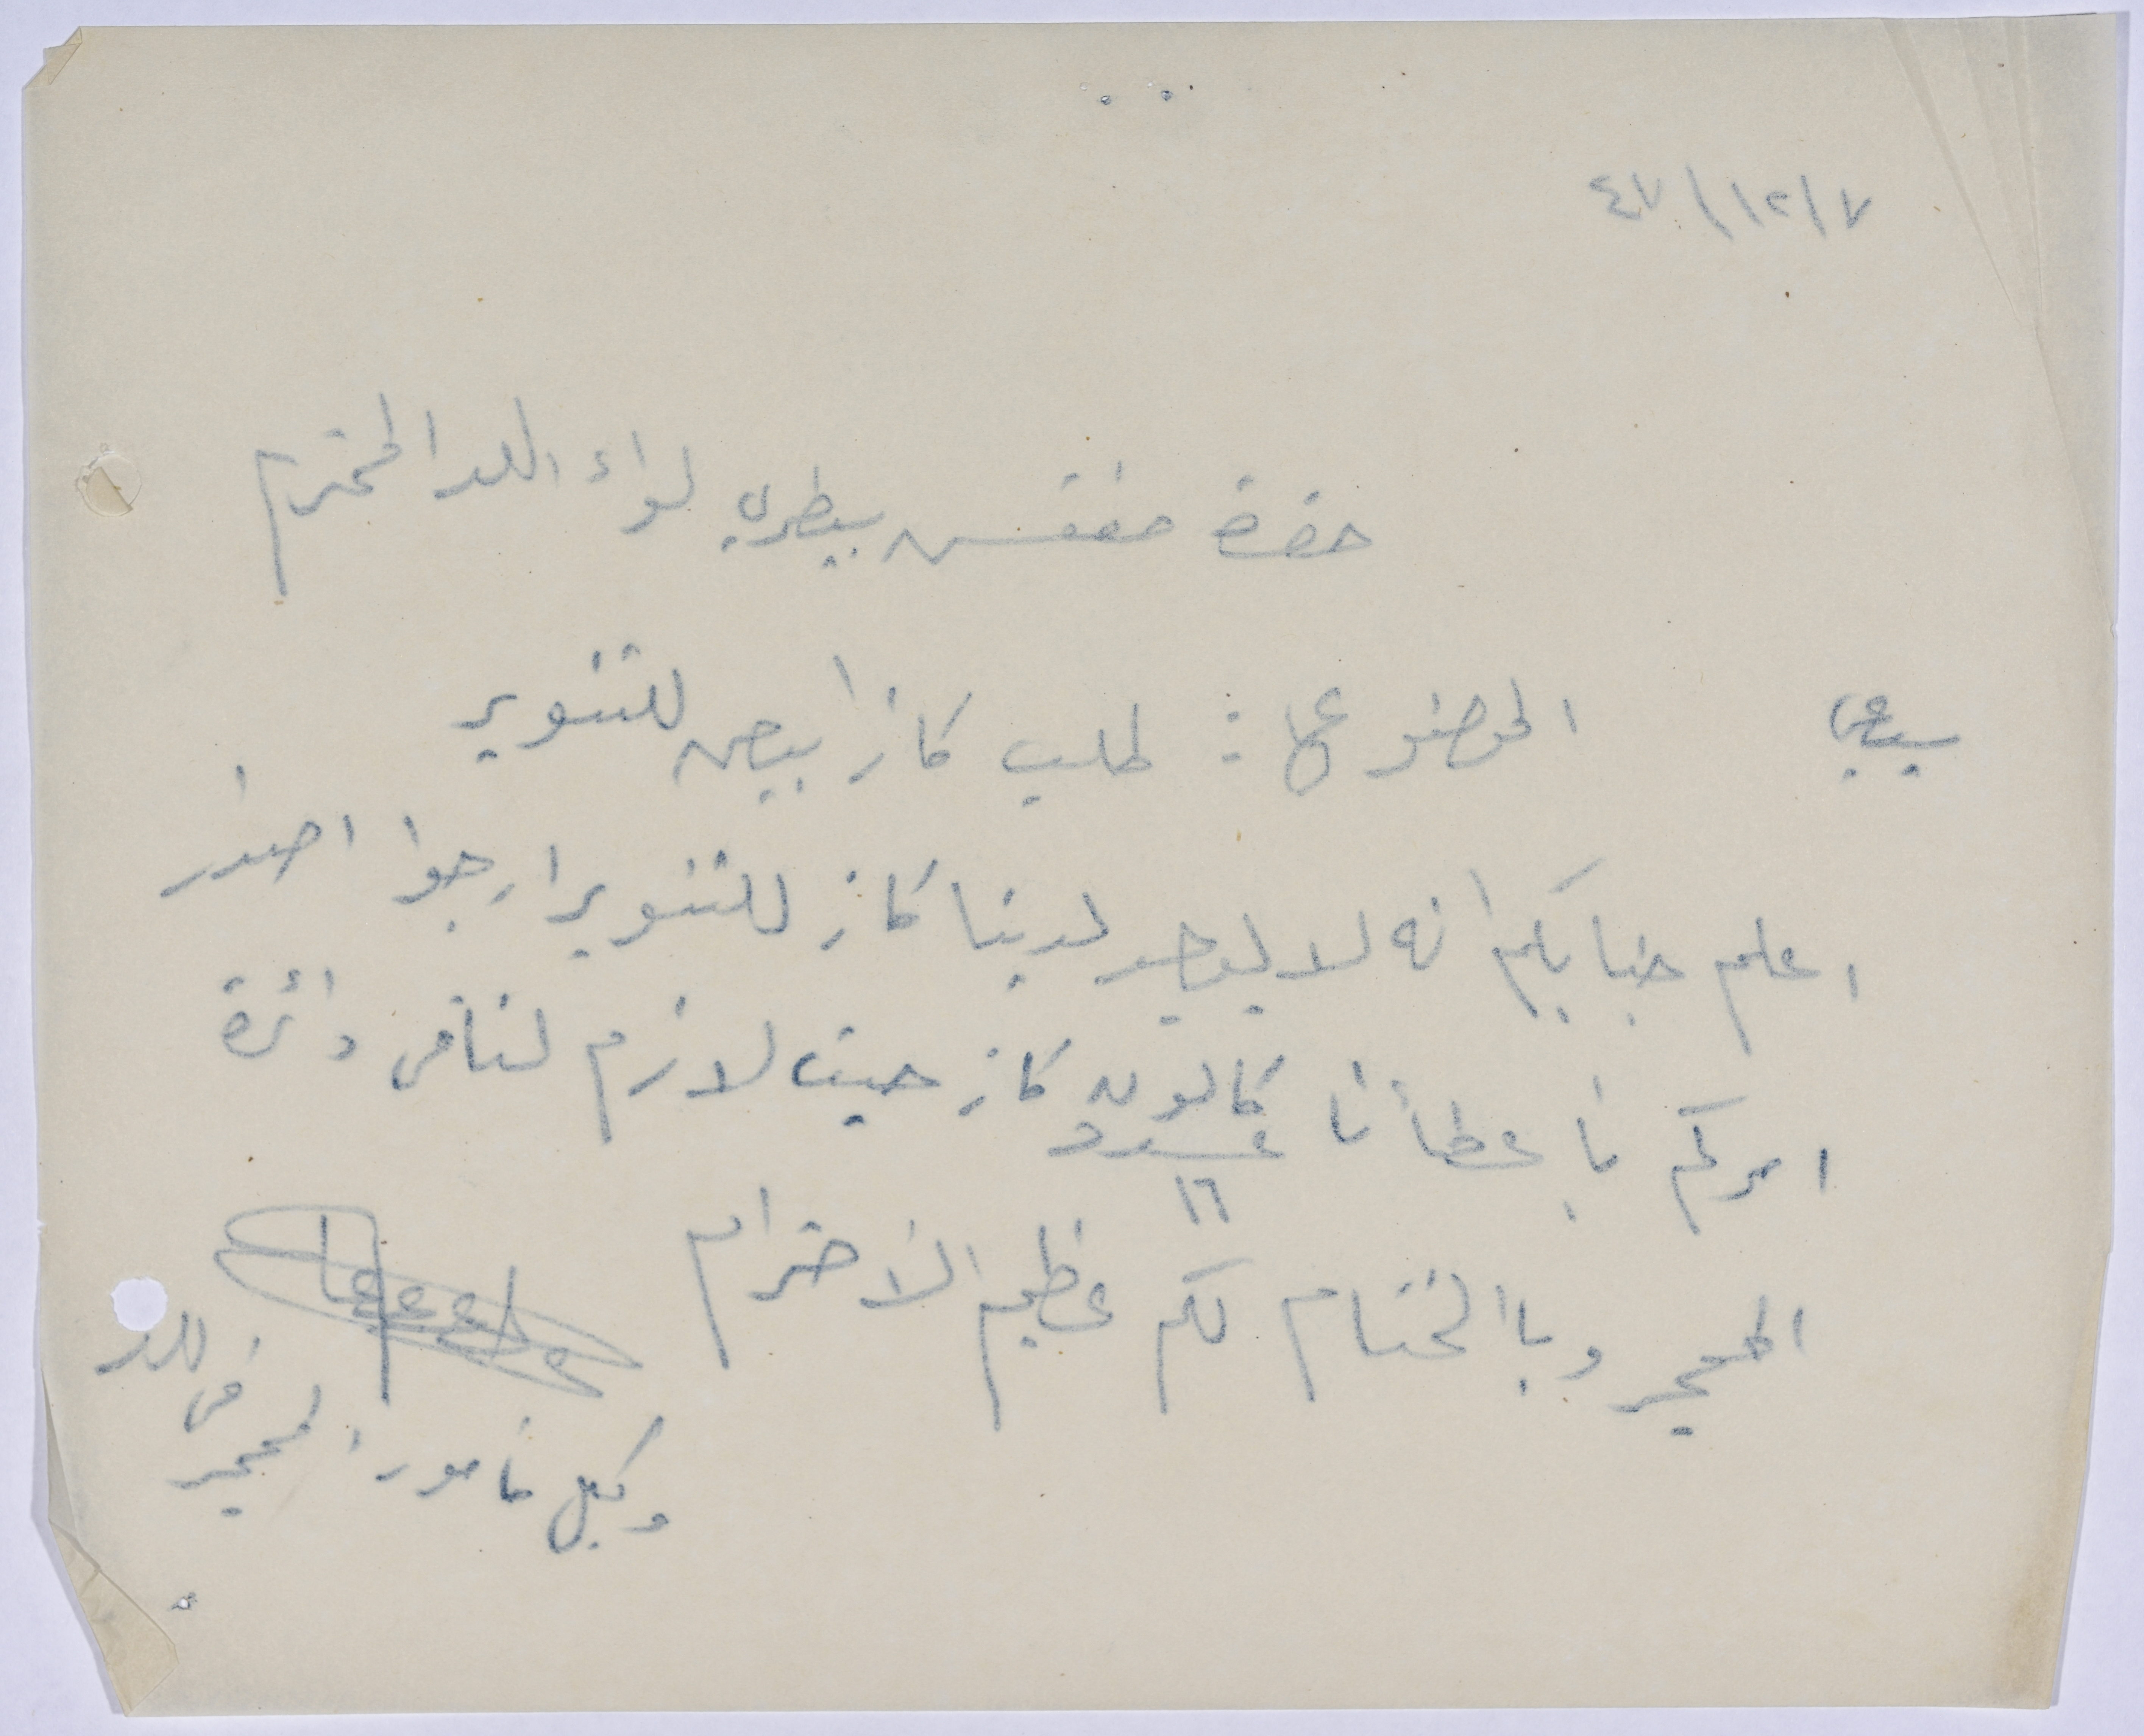 ٤٧/١٢/٧
حضرة مفتش بيطري لواء اللد المحترم
سيدي الموضوع : طلب كاز ابيض للتنوير
اعلم جنابكم انه لا يوجد لدينا كاز للتنوير ارجوا اصدار
امركم باعطائنا كالون كاز حيث لازم لنا في دائرة
عدد
١٦
المحجر وبالختام لكم عظيم الاحترام
وكيل مأمور المحجر
في اللد